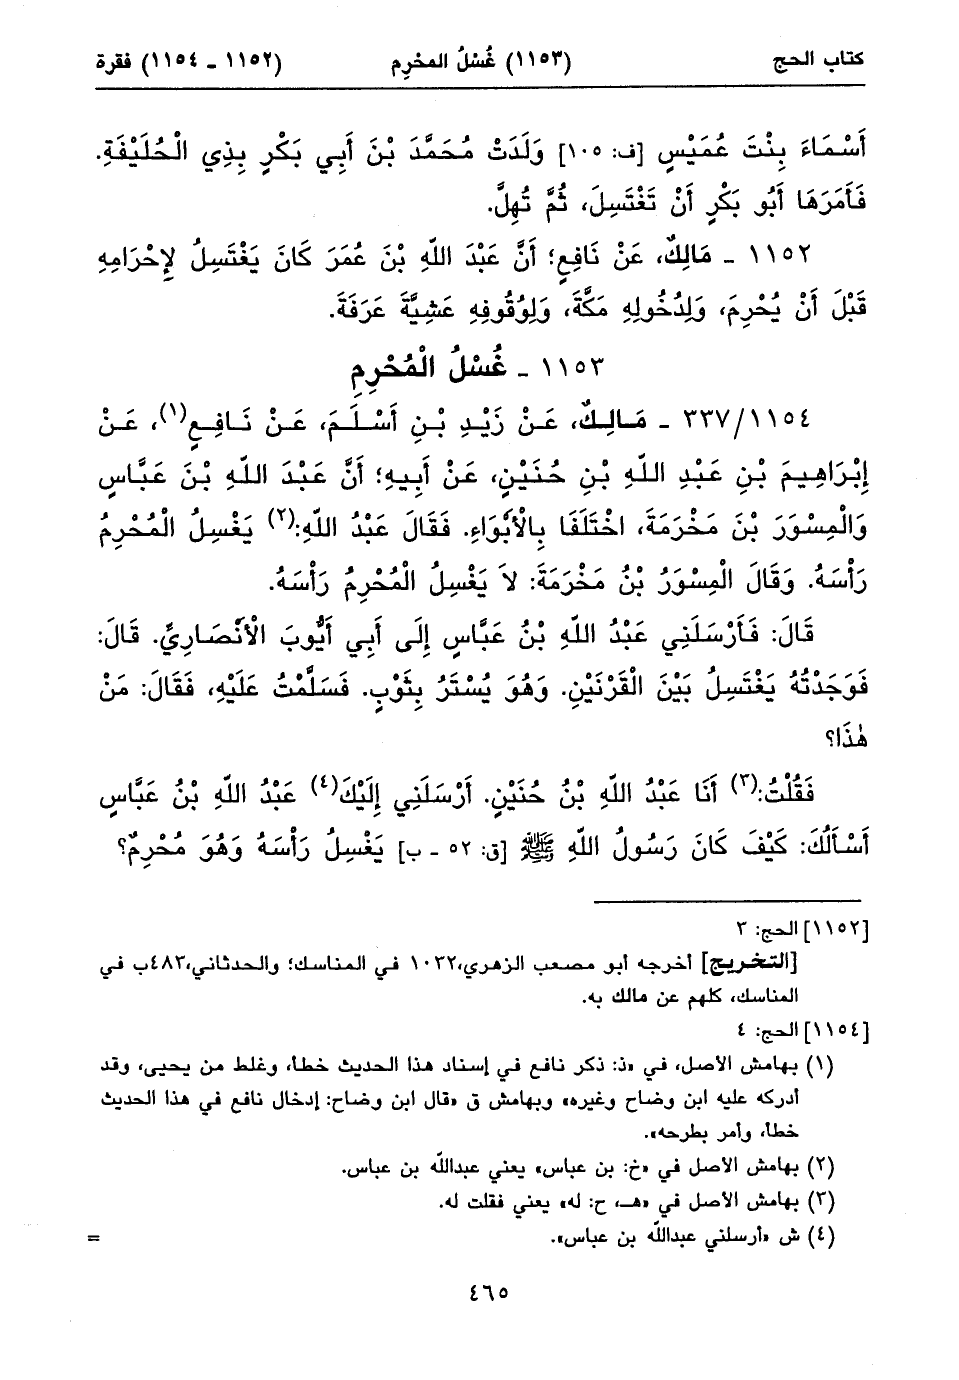 كتاب الحج (١١٥٣) غُسْلُ المحْرِم (١١٥٢ ـ ١١٥٤) فقرة
أَسْمَاءَ بِنْتَ عُمَيْسٍ [ف: ١٠٥] وَلَدَتْ مُحَمَّدَ بْنَ أَبِي بَكْرٍ بِذِي الْحُلَيْفَةِ.
فَأَمَرَهَا أَبُو بَكْرٍ أَنْ تَغْتَسِلَ، ثُمَّ تُهِلَّ.
١١٥٢ ـ مَالِكٌ، عَنْ نَافِعٍ؛ أَنَّ عَبْدَ اللّٰهِ بْنَ عُمَرَ كَانَ يَغْتَسِلُ لِإِحْرَامِهِ
قَبْلَ أَنْ يُحْرِمَ، وَلِدُخُولِهِ مَكَّةَ، وَلِوُقُوفِهِ عَشِيَّةَ عَرَفَةَ.
١١٥٣ ـ غُسْلُ الْمُحْرِمِ
٣٣٧/١١٥٤ ـ مَالِكٌ، عَنْ زَيْدِ بْنِ أَسْلَمَ، عَنْ نَافِعٍ(١)، عَنْ
إِبْرَاهِيمَ بْنِ عَبْدِ اللّٰهِ بْنِ حُنَيْنٍ، عَنْ أَبِيهِ؛ أَنَّ عَبْدَ اللّٰهِ بْنَ عَبَّاسٍ
وَالْمِسْوَرَ بْنَ مَخْرَمَةَ، اخْتَلَفَا بِالْأَبْوَاءِ. فَقَالَ عَبْدُ اللّٰهِ:(٢) يَغْسِلُ الْمُحْرِمُ
رَأْسَهُ. وَقَالَ الْمِسْوَرُ بْنُ مَخْرَمَةَ: لاَ يَغْسِلُ الْمُحْرِمُ رَأْسَهُ.
قَالَ: فَأَرْسَلَنِي عَبْدُ اللّٰهِ بْنُ عَبَّاسٍ إِلَى أَبِي أَيُّوبَ الْأَنْصَارِيِّ. قَالَ:
فَوَجَدْتُهُ يَغْتَسِلُ بَيْنَ الْقَرْنَيْنِ. وَهُوَ يُسْتَرُ بِثَوْبٍ. فَسَلَّمْتُ عَلَيْهِ، فَقَالَ: مَنْ
هٰذَا؟
فَقُلْتُ:(٣) أَنَا عَبْدُ اللّٰهِ بْنُ حُنَيْنٍ. أَرْسَلَنِي إِلَيْكَ(٤) عَبْدُ اللّٰهِ بْنُ عَبَّاسٍ
أَسْأَلُكَ: كَيْفَ كَانَ رَسُولُ اللّٰهِ ﷺ [ق: ٥٢ ـ ب] يَغْسِلُ رَأْسَهُ وَهُوَ مُحْرِمٌ؟
[١١٥٢] الحج: ٣
[التخريج] أخرجه أبو مصعب الزهري، ١٠٣٢ في المناسك؛ والحدثاني، ٤٨٣ب في
المناسك، كلهم عن مالك به.
[١١٥٤] الحج: ٤
(١) بهامش الأصل، في «ذ: ذكر نافع في إسناد هذا الحديث خطأ، وغلط من يحيى، وقد
أدركه عليه ابن وضاح وغيره» وبهامش ق «قال ابن وضاح: إدخال نافع في هذا الحديث
خطأ، وأمر بطرحه».
(٢) بهامش الأصل في «خ: بن عباس» يعني عبدالله بن عباس.
(٣) بهامش الأصل في «هـ، ح: له» يعني فقلت له.
(٤) ش «أرسلني عبدالله بن عباس».
=
٤٦٥